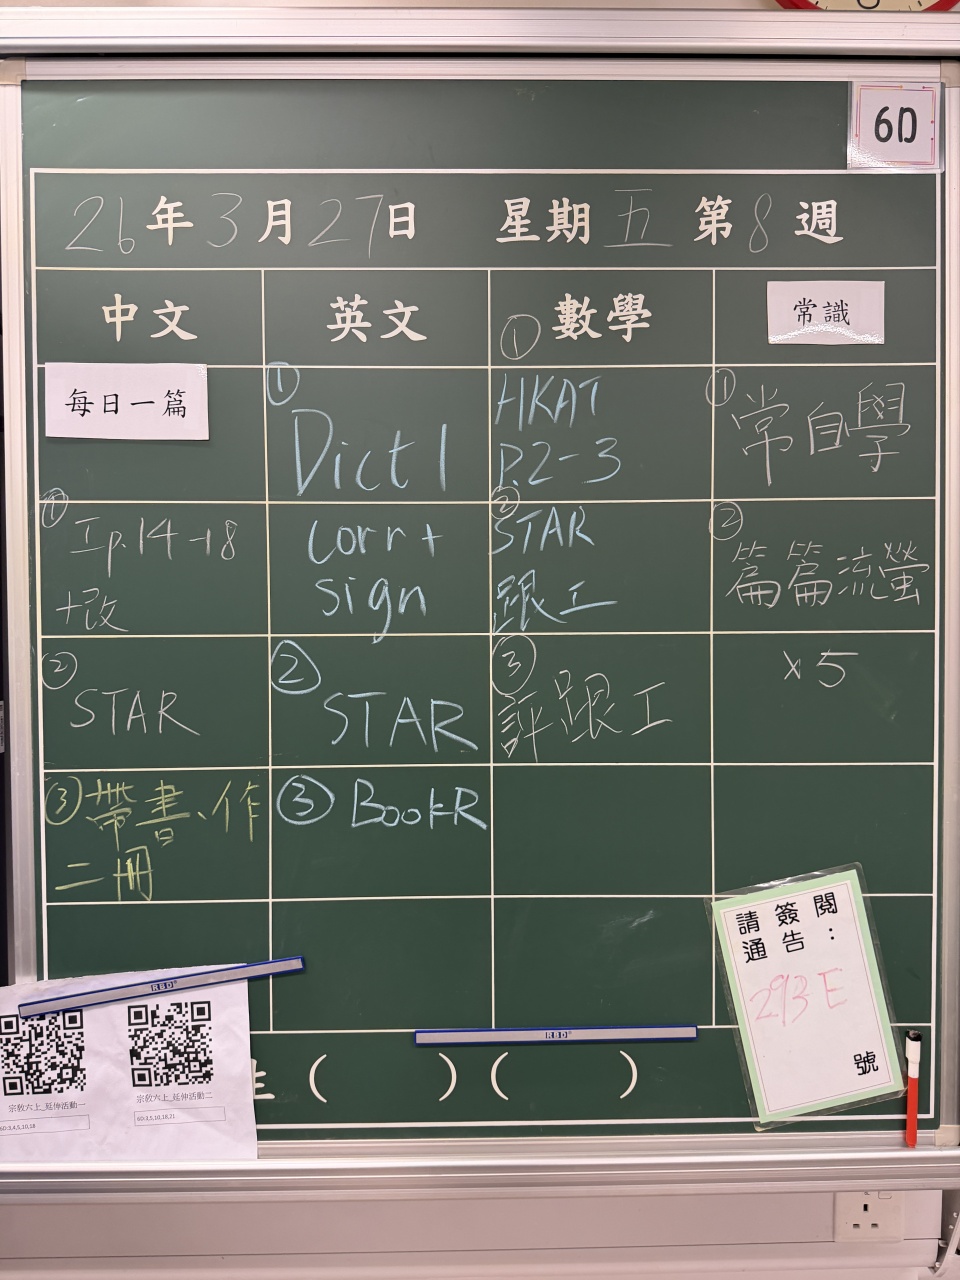 6D
26年3月27日 星期五第8週
中文
英文
① 數學
常識
每日一篇
① 工p.14-18
+改
② STAR
③ 帶書、作
二冊
① Dict 1
corr +
sign
② STAR
③ BookR
HKAT
P.2-3
② STAR
跟工
③ 評跟工
① 常自學
② 篇篇流螢
x5
請簽閱
通告:
293E
號
RBD
RBD
宗教六上_延伸活動一
6D:3,4,5,10,18
宗教六上_延伸活動二
6D:3,5,10,18,21
( ) ( )